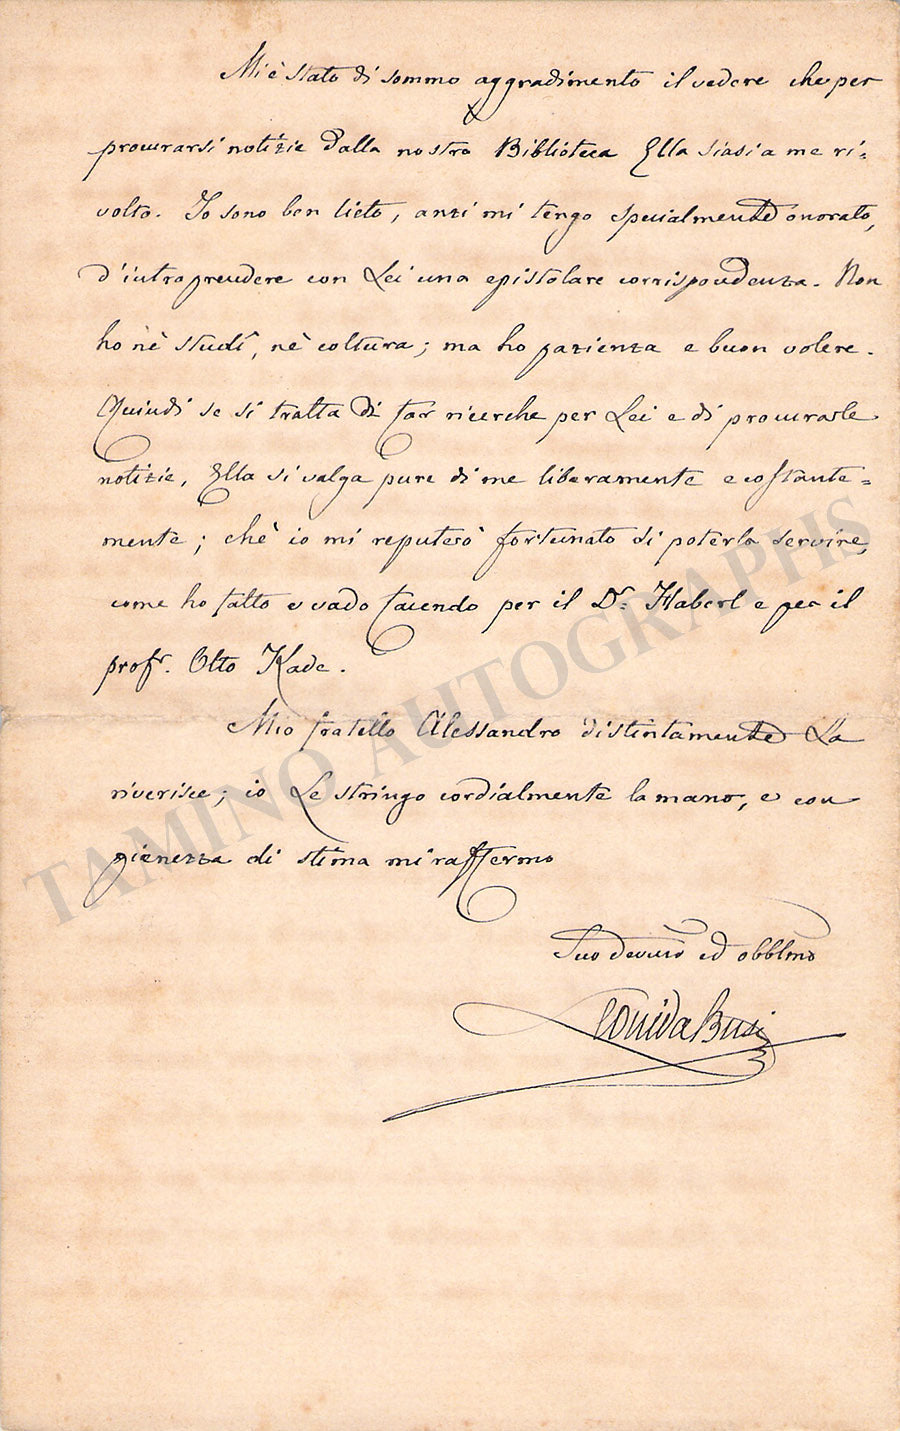 Mi è stato di sommo aggradimento il vedere che per
procurarsi notizie dalla nostra Biblioteca Ella siasi a me ri-
volto. Io sono ben lieto, anzi mi tengo specialmente onorato,
d'intraprendere con Lei una epistolare corrispondenza. Non
ho nè studî, nè coltura; ma ho pazienza e buon volere.
Quindi se si tratta di far ricerche per Lei e di procurarle
notizie, Ella si valga pure di me liberamente e costante-
mente; chè io mi reputerò fortunato di poterla servire,
come ho fatto e vado facendo per il Dr. Haberl e per il
profr. Otto Kade.
Mio fratello Alessandro distintamente La
riverisce; io Le stringo cordialmente la mano, e con
pienezza di stima mi raffermo
Suo devmo ed obblmo
Leonida Busi
TAMINO AUTOGRAPHS